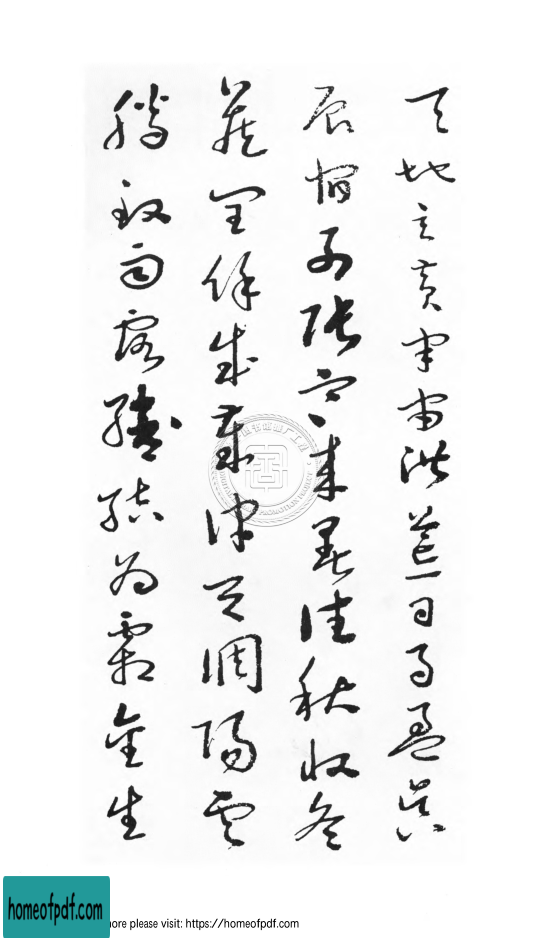 天地玄黃宇宙洪荒日月盈昃
辰宿列張寒來暑往秋收冬
藏閏餘成歲律呂調陽雲
騰致雨露結為霜金生
homeofpdf.com
more please visit: https://homeofpdf.com